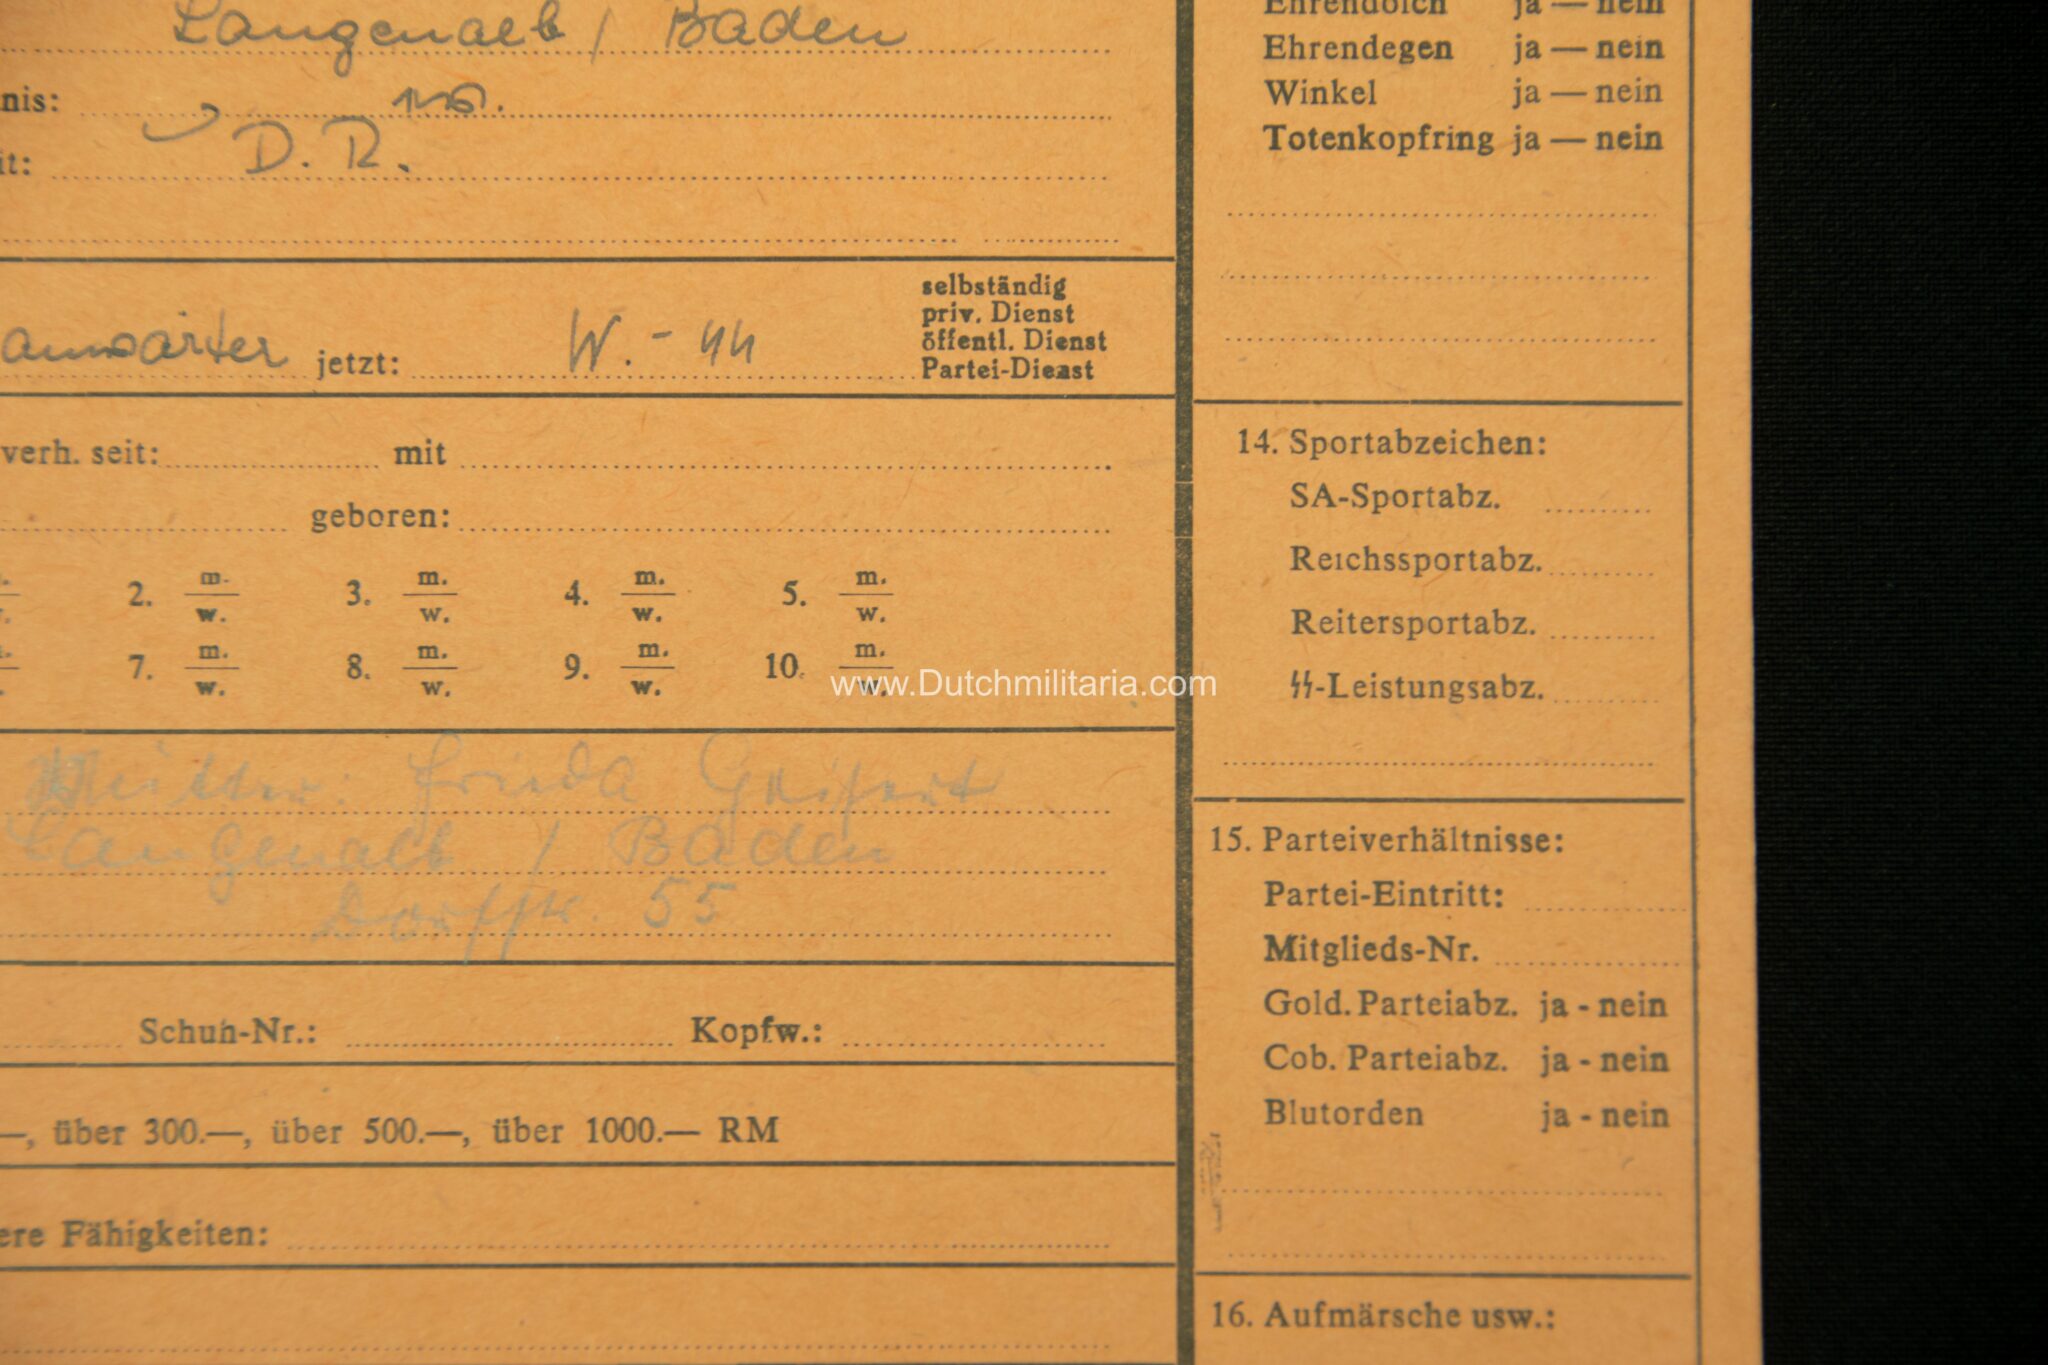 Langenalb / Baden
nis:
it: D. R.
anwärter jetzt: W.-ϟϟ
selbständig
priv. Dienst
öffentl. Dienst
Partei-Dienst
verh. seit: mit
geboren:
2. m. w. 3. m. w. 4. m. w. 5. m. w.
7. m. w. 8. m. w. 9. m. w. 10. m. w.
Mutter: Frieda
Langenalb / Baden
Dorfstr. 55
Schuh-Nr.: Kopfw.:
—, über 300.—, über 500.—, über 1000.— RM
ere Fähigkeiten:
Ehrendolch ja — nein
Ehrendegen ja — nein
Winkel ja — nein
Totenkopfring ja — nein
14. Sportabzeichen:
SA-Sportabz.
Reichssportabz.
Reitersportabz.
ϟϟ-Leistungsabz.
15. Parteiverhältnisse:
Partei-Eintritt:
Mitglieds-Nr.
Gold. Parteiabz. ja - nein
Cob. Parteiabz. ja - nein
Blutorden ja - nein
16. Aufmärsche usw.:
www.Dutchmilitaria.com